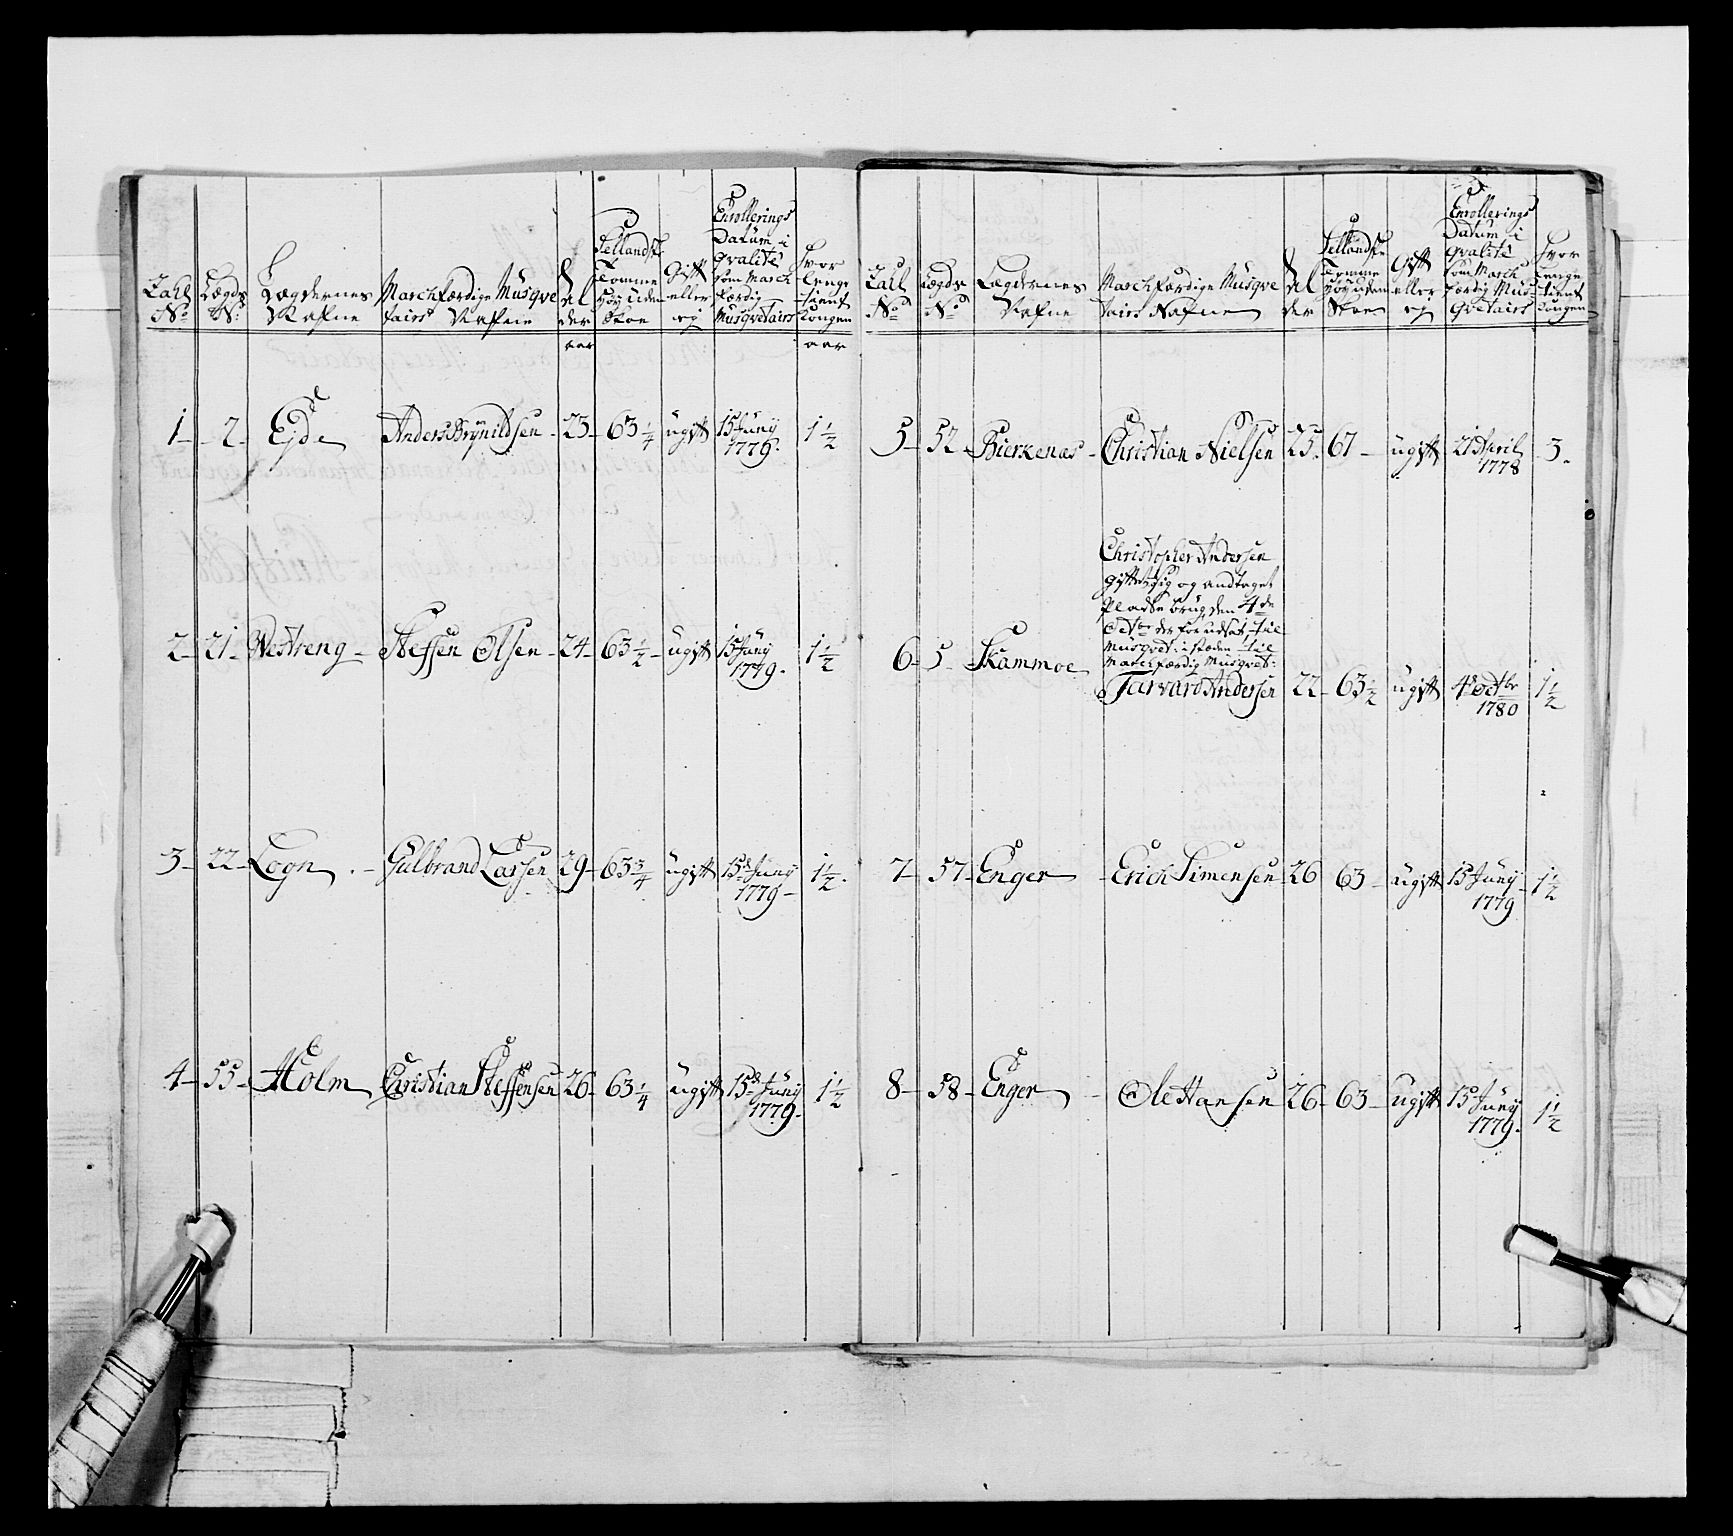 Zahl No
Lægds No
Lægdernes Nafne
Marchfærdige Musqve
tairs Nafne
Al
der
aar
Sellandske
Tomme
Høy uden
Skoe
Gift
eller
ej
Enrollerings
Datum i
qvalité
som March
færdig
Musqvetairs
Hvor
lenge
tient
Kongen
aar
1 - 2 - Ejde Anders Brynildsen - 23 - 63 1/4 ugift 15 Juny 1 1/2
1779.
2 - 21 - Westreng - Steffen Olsen - 24 - 63 1/2 - ugift 15 Juny 1 1/2
1779.
3 - 22 - Logn - Gulbrand Larsen 29 - 63 3/4 ugift 15d Juny 1 1/2.
1779 -
4 - 55 - Holm Christian Steffensen 26 - 63 1/4 ugift 15d Juny 1 1/2
1779.
Zahl No
Lægds No
Lægdernes Nafne
Marchfærdige Musqve
tairs Nafne
Al
der
Sellandske
Tomme
Høy uden
Skoe
Gift
eller
ej
Enrollerings
Datum i
qvalité
som March
færdig Mus-
qvetairs
Hvor
lenge
tient
Kongen
5 - 52 - Bierkenæs - Christian Nielsen 25. 67 - ugift 21 April 3.
1778
Christopher Andersen
giftet sig og andtaget
Pladse brug den 4de
Octbr der for udsat til
Musqvet: i stæden til
Marchfærdig Musqvet:
6 - 5 - Skammoe Tarvard Andersen 22 - 63 1/2 ugift 4d Octbr 1 1/2
1780
7 - 57 - Enger - Erich Simensen - 26 63 - ugift 15 Juny - 1 1/2
1779
8 - 58 - Enger - Ole Hansen 26 - 63 - ugift 15d Juny 1 1/2
1779.